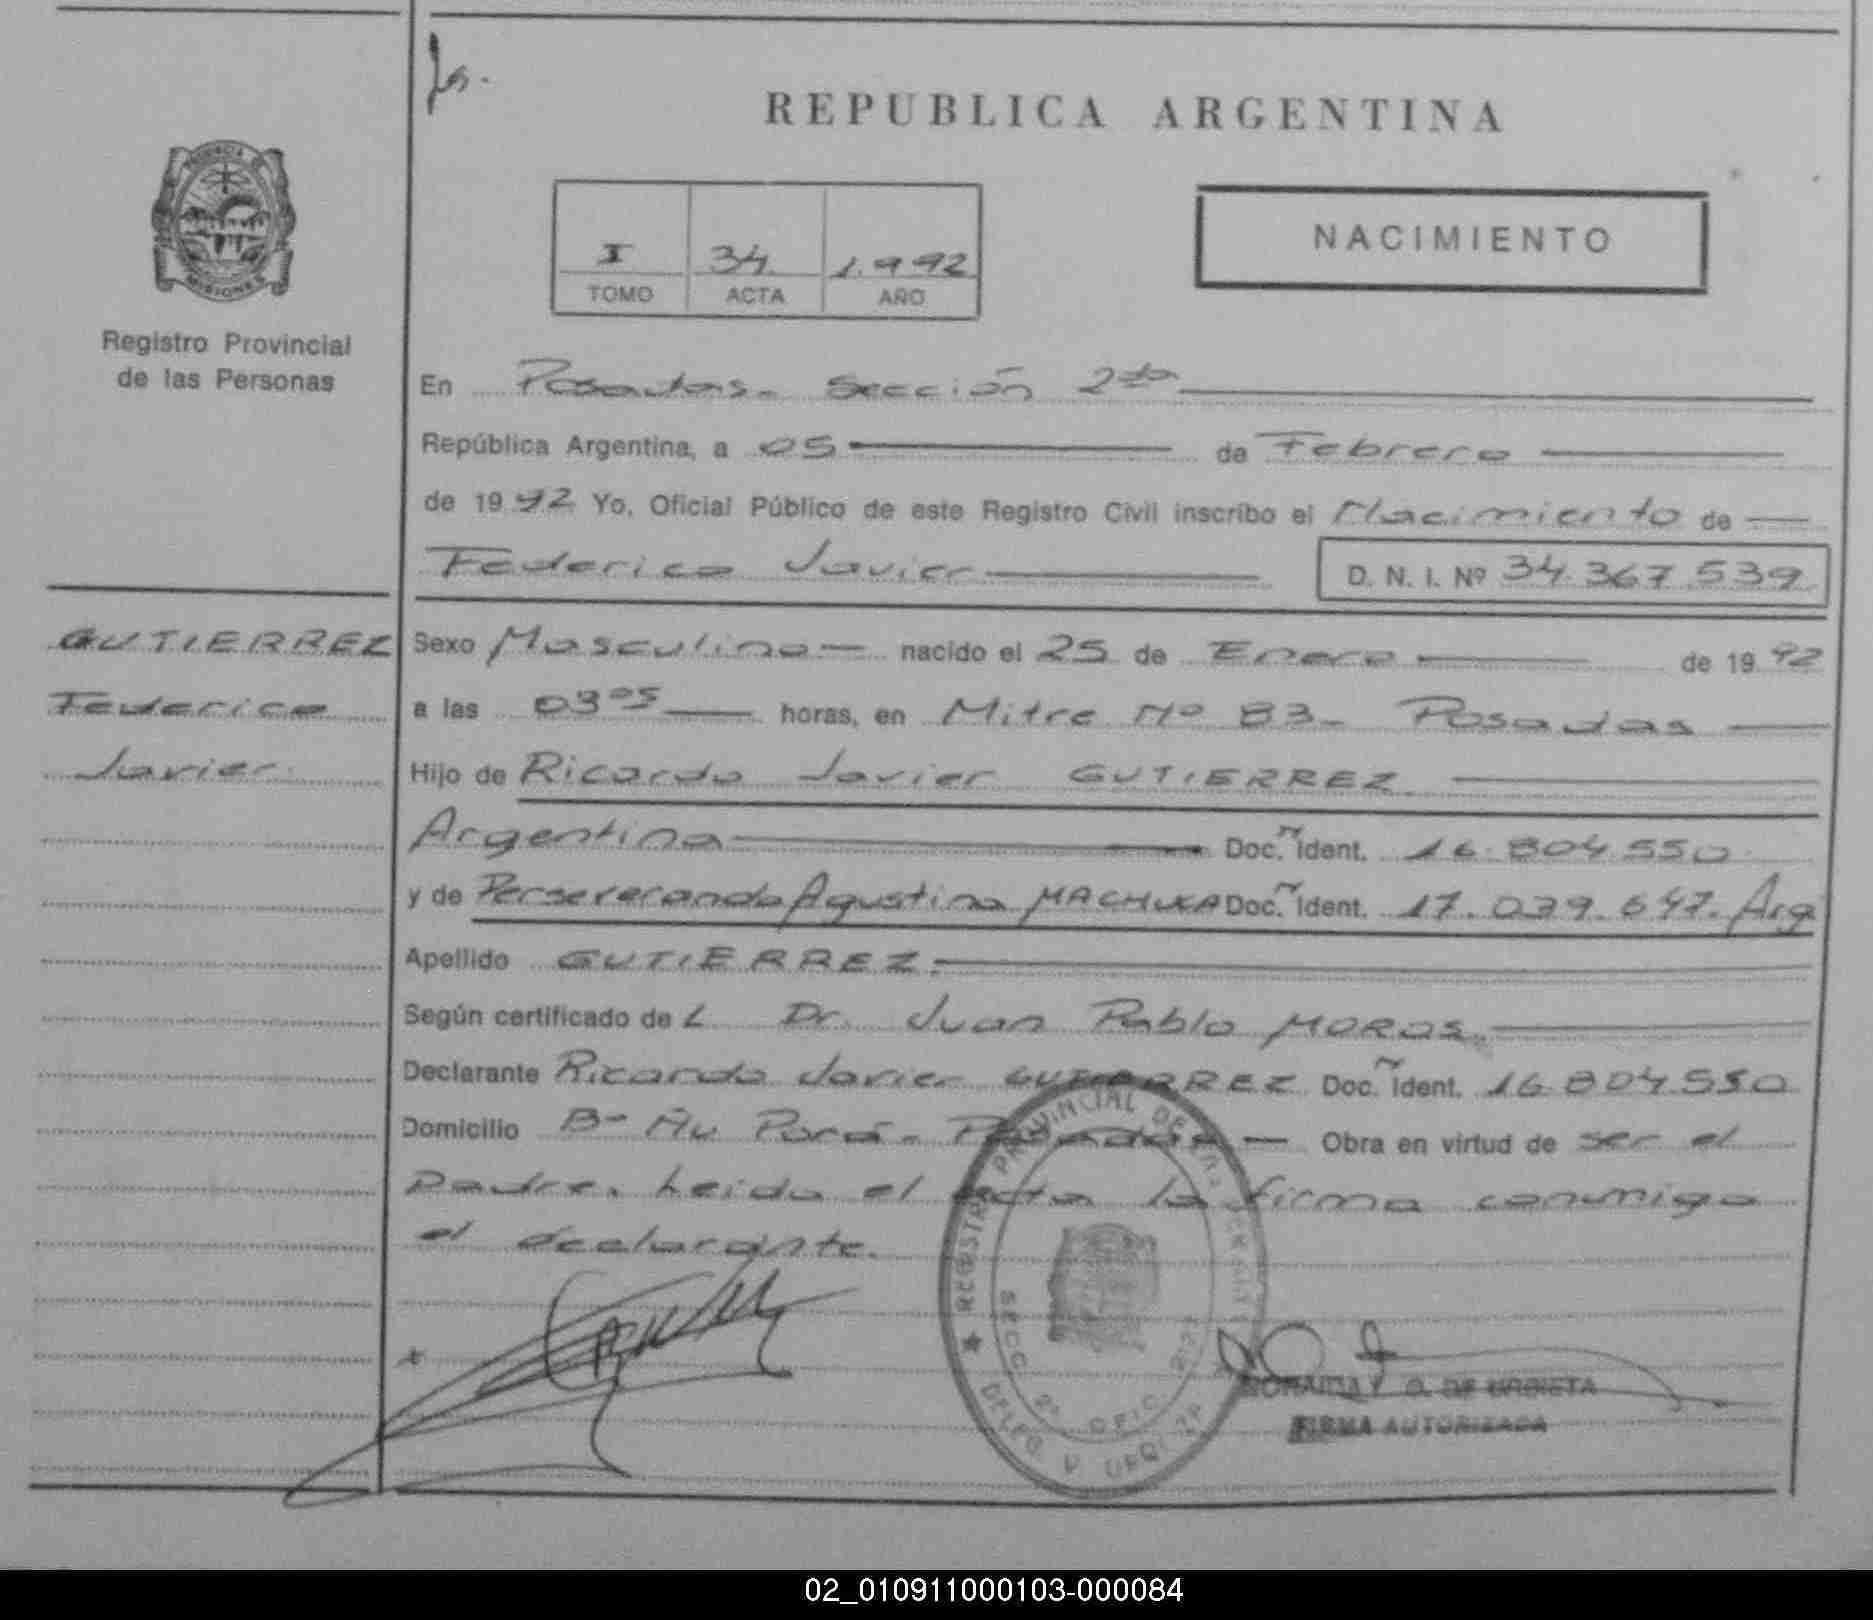 REPUBLICA ARGENTINA
PROVINCIA DE
MISIONES
Registro Provincial
de las Personas
I 34 1.992
TOMO ACTA AÑO
NACIMIENTO
En Posadas - Sección 2da
República Argentina, a 05 de Febrero
de 1992 Yo, Oficial Público de este Registro Civil inscribo el Nacimiento de
Federico Javier D. N. I. Nº 34.367.539
GUTIERREZ
Federico
Javier
Sexo Masculino nacido el 25 de Enero de 1992
a las 03 05 horas, en Mitre Nº 83 - Posadas
Hijo de Ricardo Javier GUTIERREZ
Argentina Doc. Ident. 16.804.550
y de Perseveranda Agustina MACHUCA Doc. Ident. 17.039.647. Arg
Apellido GUTIERREZ.
Según certificado de L Dr. Juan Pablo MOROS.
Declarante Ricardo Javier GUTIERREZ Doc. Ident. 16.804.550
Domicilio Bº Ñu Porá - Posadas Obra en virtud de ser el
Padre. Leida el acta la firma conmigo
el declarante.
REGISTRO PROVINCIAL DE LAS PERSONAS
SECC. 2ª OFIC.
DELEG. V. URQUIZA
FIRMA AUTORIZADA
02_010911000103-000084